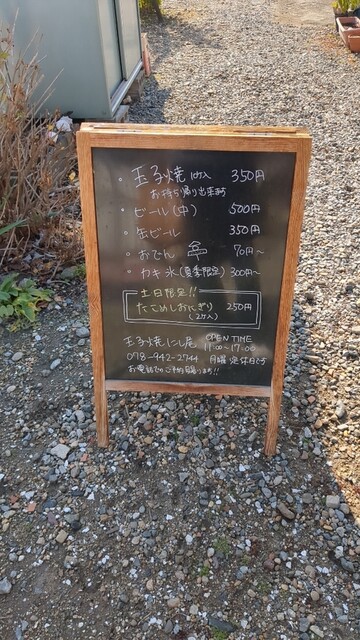 ・玉子焼 10ヶ入 350円
お持ち帰り出来ます
・ビール(中) 500円
・缶ビール 350円
・おでん 70円〜
・カキ氷(夏季限定) 300円〜
土日限定!!
たこめしおにぎり 250円
(2ヶ入)
玉子焼 にし庵 OPEN TIME
11:00〜17:00
078-942-2744 月曜定休日
お電話でのご予約賜ります!!